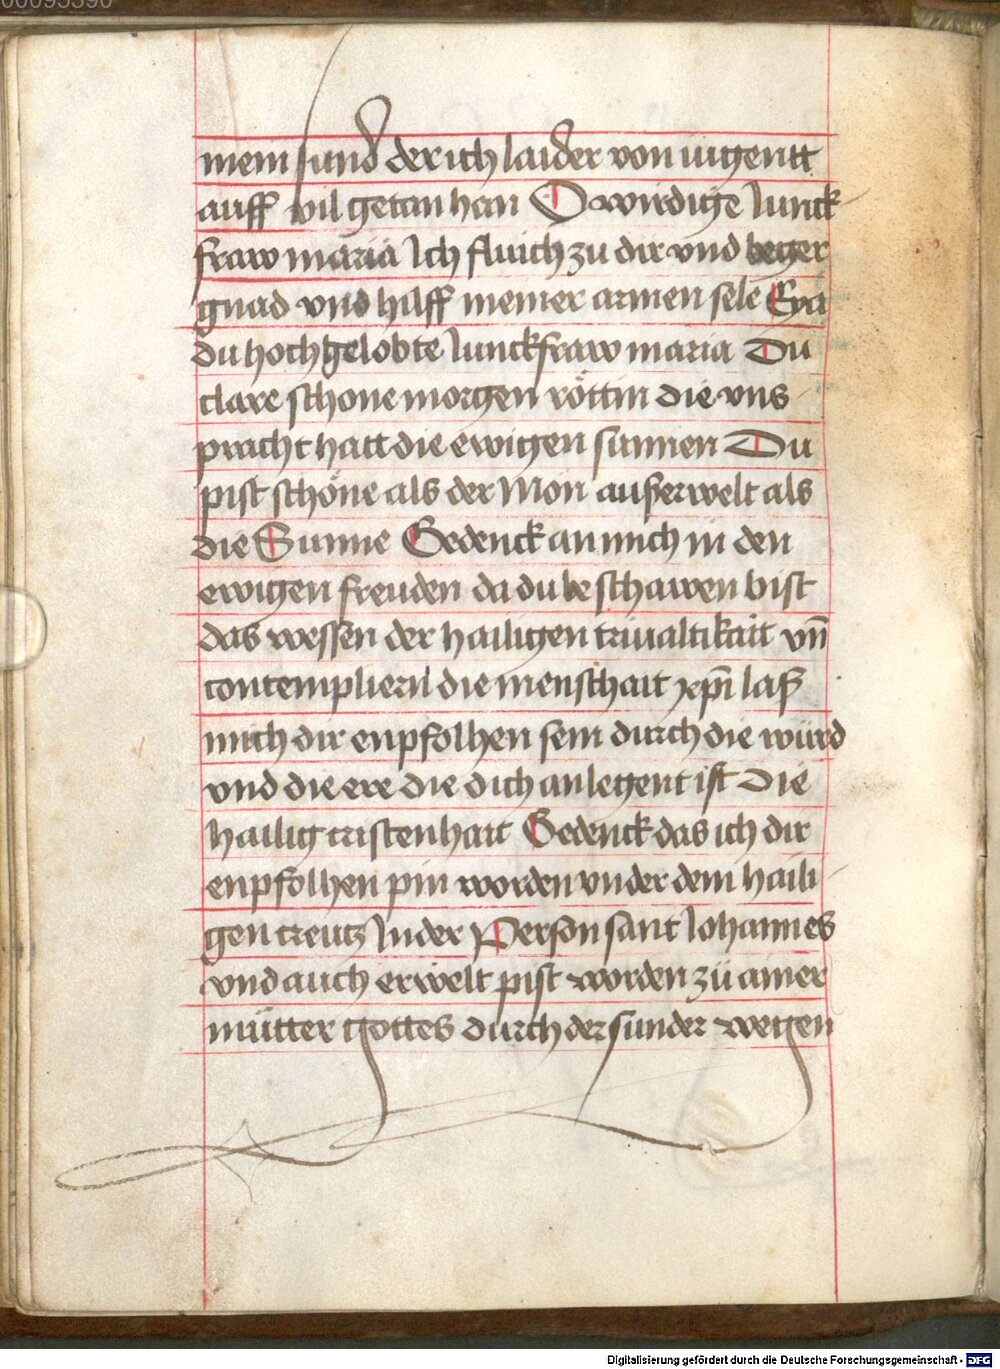 00095390
mein sund der ich laider von iugentt
auff vil getan han O wirdige Iunck
fraw maria Ich fluich zu dir vnd beger
gnad vnd hilff meiner armen sele Eya
du hochgelobte Iunckfraw maria Du
clare schone morgen röttin die vns
pracht hatt die ewigen sunnen Du
pist schöne als der Mon außerwelt als
die Sunne Gedenck an mich in den
ewigen freuden da du beschawen bist
das wessen der hailigen triualtikait vn̄
contempliern die menschait xp̄i laß
mich dir enpfolhen sein durch die würd
vnd die ere die dich anlegent ist Die
hailig cristenhait Gedenck das ich dir
enpfolhen pin worden vnder dem haili
gen creutz In der Person sant Iohannes
vnd auch erwelt pist worden zü ainer
mütter gottes durch der sunder wegen
Digitalisierung gefördert durch die Deutsche Forschungsgemeinschaft - DFG